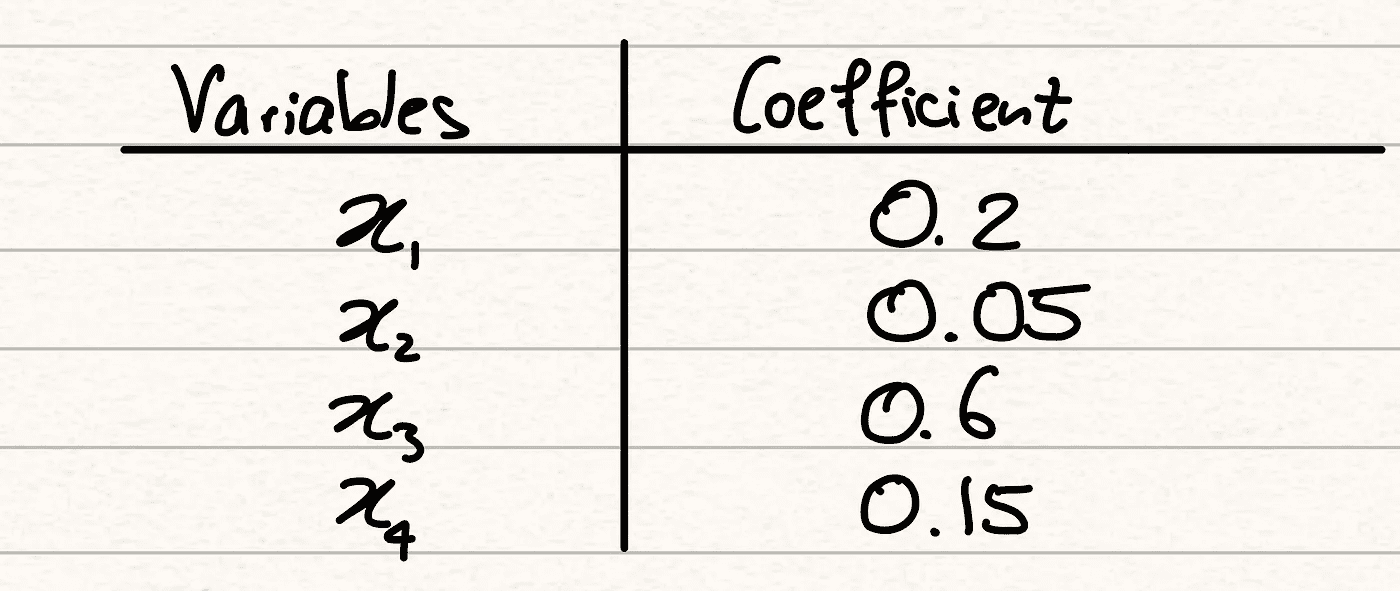 Variables Coefficient
x₁ 0.2
x₂ 0.05
x₃ 0.6
x₄ 0.15